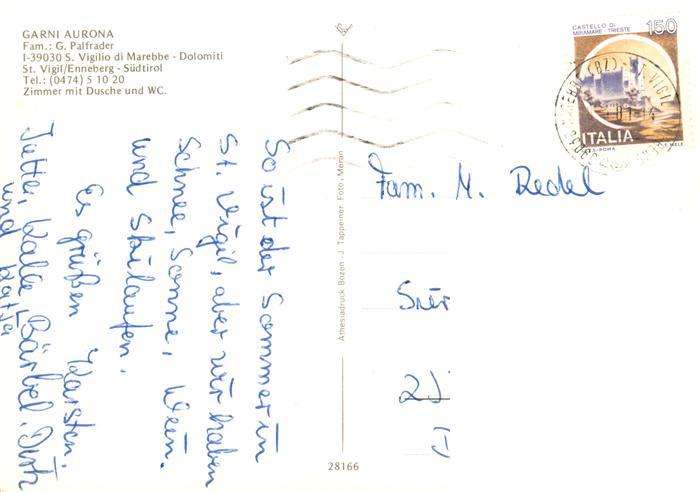 GARNI AURONA
Fam.: G. Palfrader
I-39030 S. Vigilio di Marebbe - Dolomiti
St. Vigil/Enneberg - Südtirol
Tel.: (0474) 5 10 20
Zimmer mit Dusche und WC.
So ist der Sommer in
St. Vigil, aber wir haben
Schnee, Sonne, Wein.
und Skilaufen.
Es grüßen Karsten,
Jutta, Kalle, Bärbel, Dirk
und Katja
Athesiadruck Bozen - J. Tappeiner Foto - Meran
28166
CASTELLO DI
MIRAMARE TRIESTE
150
ITALIA
Fam. M. Redel